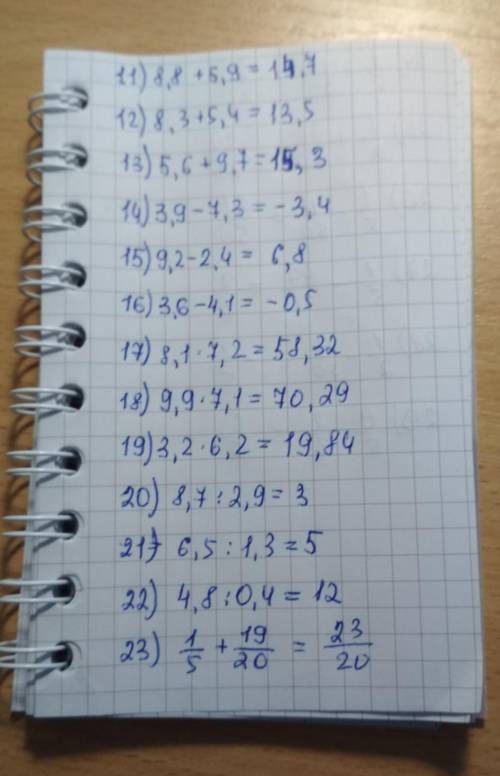 11) 8,8 + 5,9 = 14,7
12) 8,3 + 5,4 = 13,5
13) 5,6 + 9,7 = 15,3
14) 3,9 - 7,3 = - 3,4
15) 9,2 - 2,4 = 6,8
16) 3,6 - 4,1 = -0,5
17) 8,1 · 7,2 = 58,32
18) 9,9 · 7,1 = 70,29
19) 3,2 · 6,2 = 19,84
20) 8,7 : 2,9 = 3
21) 6,5 : 1,3 = 5
22) 4,8 : 0,4 = 12
23) 1/5 + 19/20 = 23/20